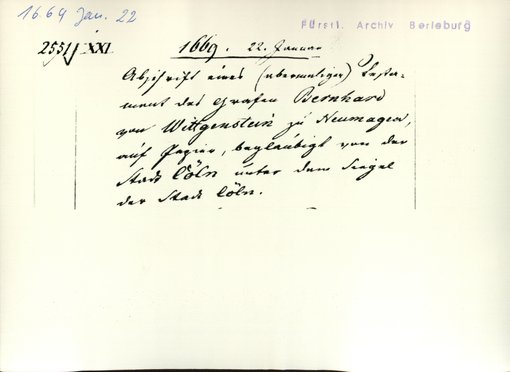 1669 Jan. 22
Fürstl. Archiv Berleburg
2551 XXI.
1669. 22. Januar
Abschrift eines (abermaligen) Testa-
ment des Grafen Bernhard
von Wittgenstein zu Neumagen,
auf Papier, beglaubigt von der
Stadt Cöln unter dem Siegel
der Stadt Cöln.